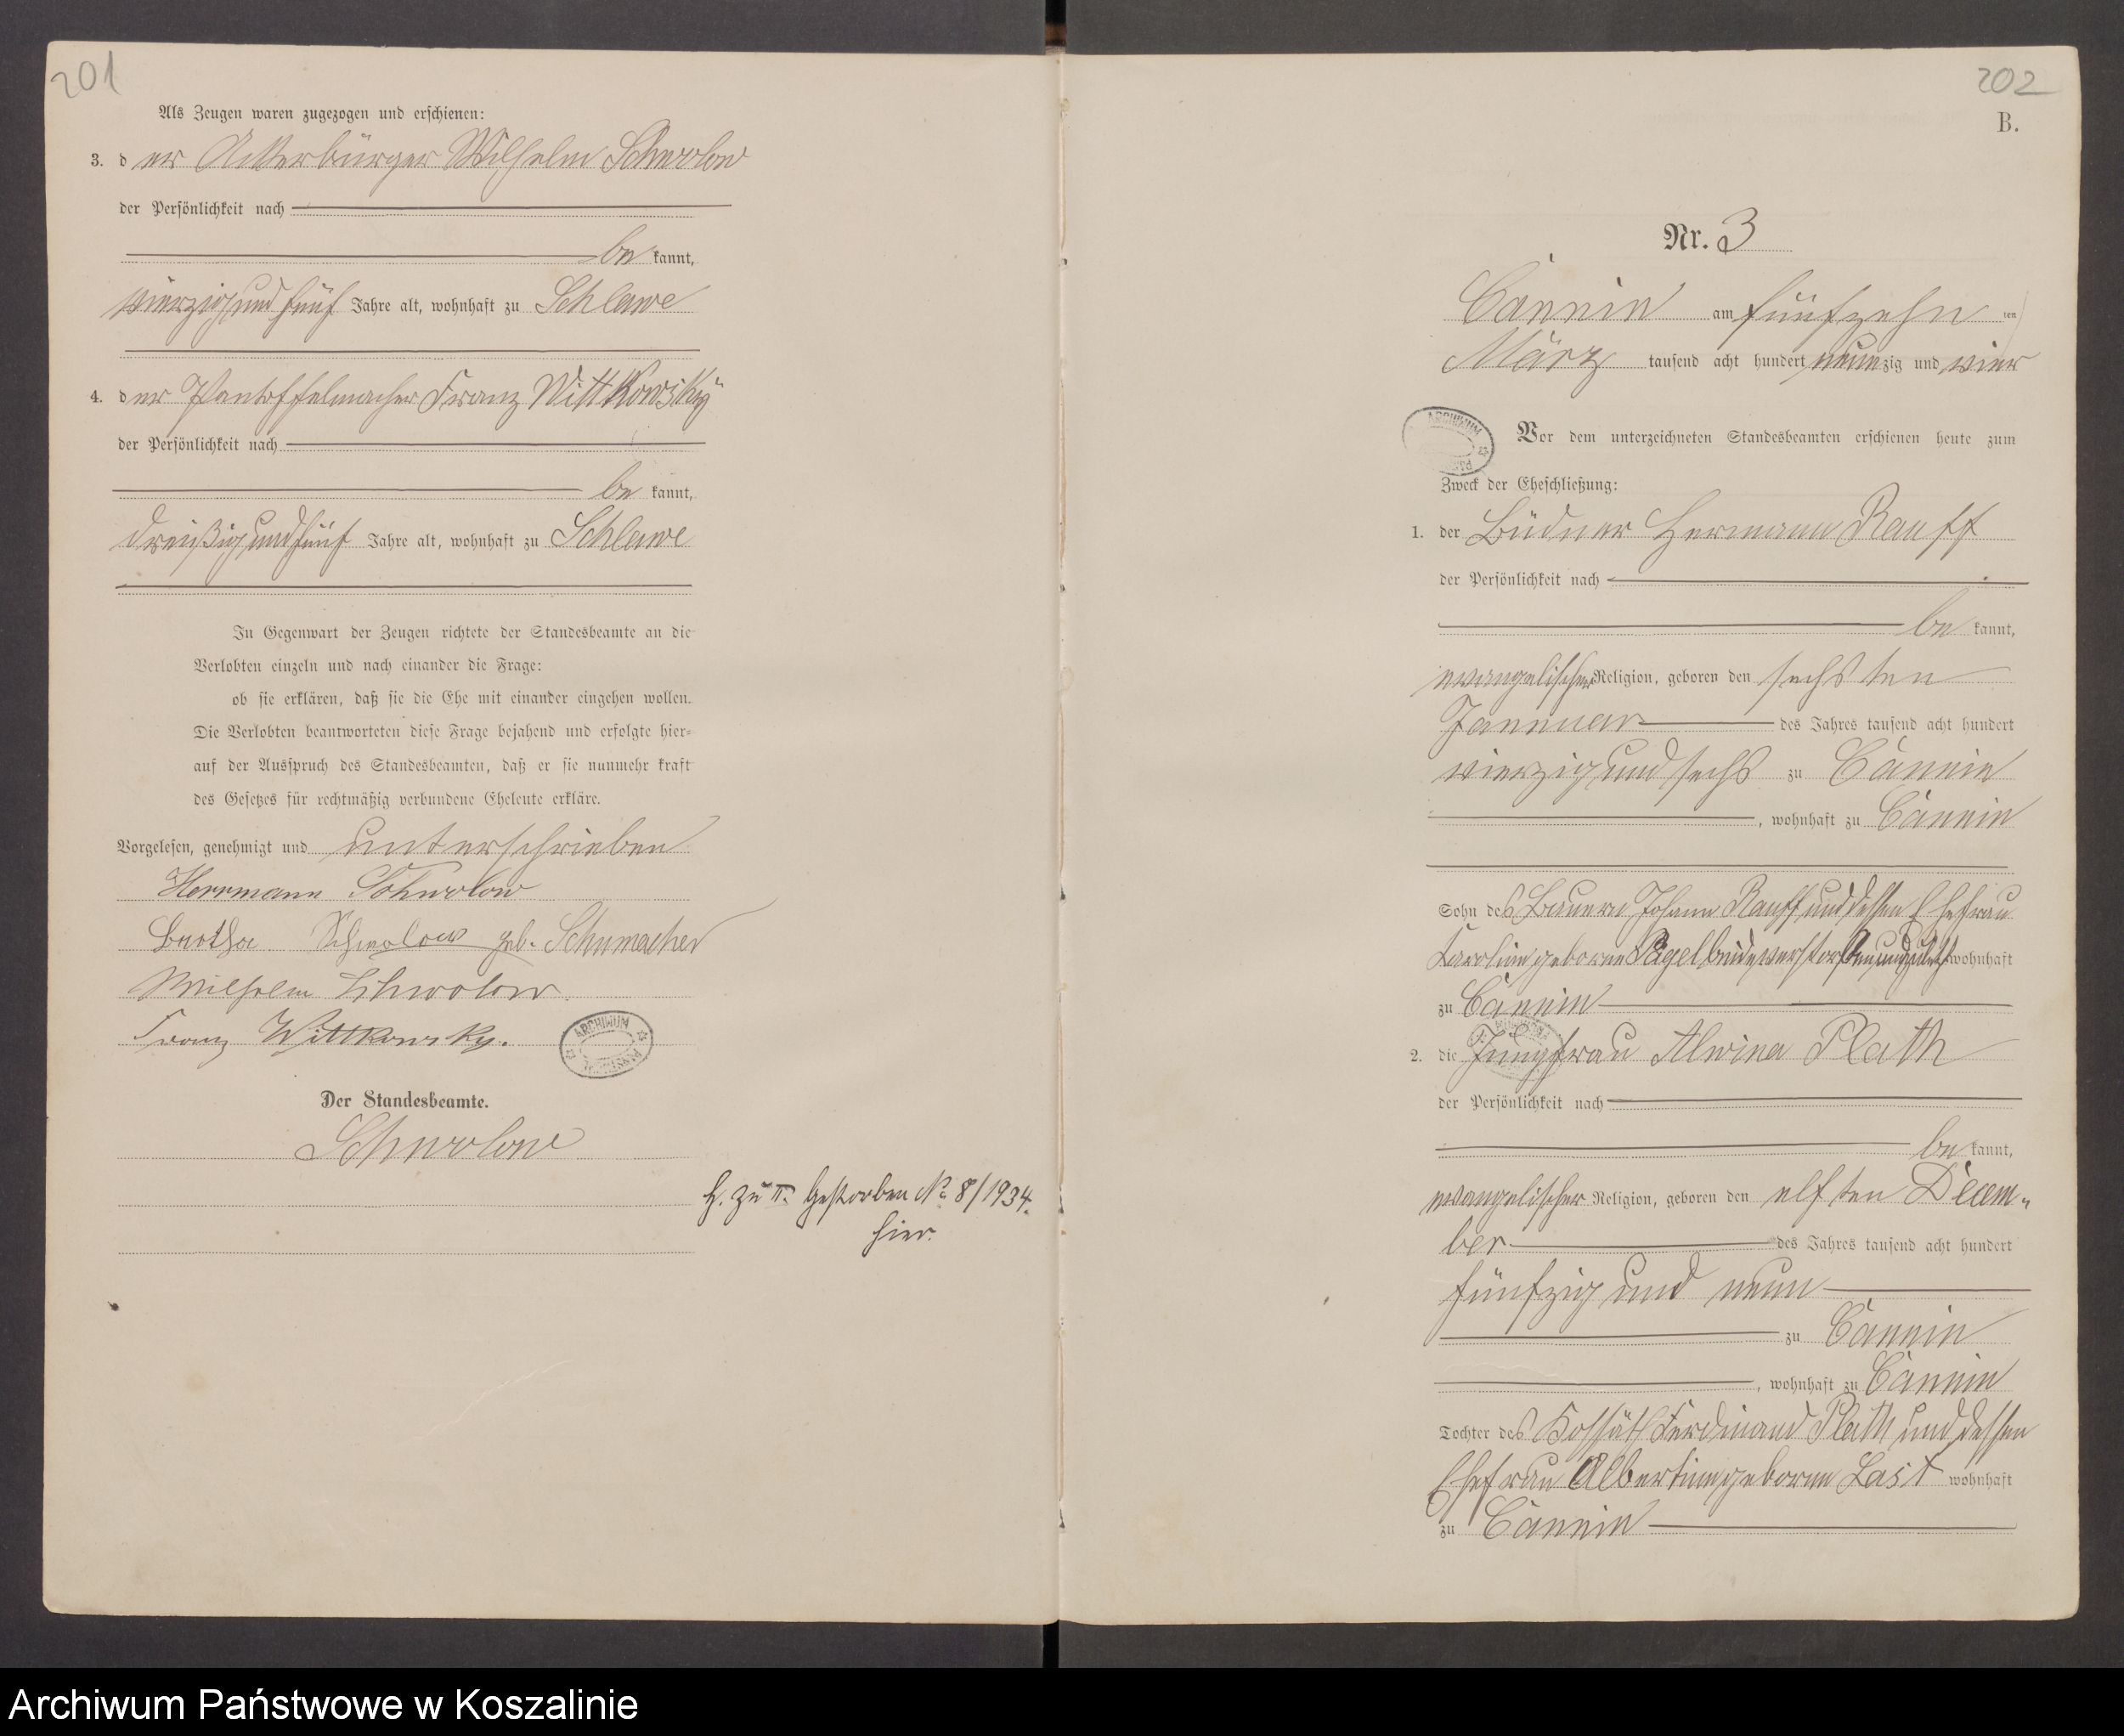 201
Als Zeugen waren zugezogen und erschienen:
3. der Ackerbürger Wilhelm Schwolow
der Persönlichkeit nach
be kannt,
vierzig und fünf Jahre alt, wohnhaft zu Schlawe
4. der Pantoffelmacher Franz Wittkowsky
der Persönlichkeit nach
be kannt,
dreißig und fünf Jahre alt, wohnhaft zu Schlawe
In Gegenwart der Zeugen richtete der Standesbeamte an die
Verlobten einzeln und nach einander die Frage:
ob sie erklären, daß sie die Ehe mit einander eingehen wollen.
Die Verlobten beantworteten diese Frage bejahend und erfolgte hier=
auf der Ausspruch des Standesbeamten, daß er sie nunmehr kraft
des Gesetzes für rechtmäßig verbundene Eheleute erkläre.
Vorgelesen, genehmigt und unterschrieben
Herrmann Schwolow
Bertha Schwolow geb. Schumacher
Wilhelm Schwolow.
Franz Wittkowsky.
ARCHIWUM
Der Standesbeamte.
Schwolow
H. zu II. Gestorben No 8/1934.
hier.
202
B.
Nr. 3
Cannin am fünfzehn ten
März tausend acht hundert neunzig und vier
ARCHIWUM
Vor dem unterzeichneten Standesbeamten erschienen heute zum
Zweck der Eheschließung:
1. der Büdner Hermann Rauff
der Persönlichkeit nach
be kannt,
evangelischer Religion, geboren den sechsten
Januar des Jahres tausend acht hundert
vierzig und sechs zu Cannin
, wohnhaft zu Cannin
Sohn des Bauern Johann Rauff und dessen Ehefrau
Karoline geborne Pagel beide verstorben und zuletzt wohnhaft
zu Cannin
2. die Jungfrau Alwina Plath
der Persönlichkeit nach
be kannt,
evangelischer Religion, geboren den elften Decem-
ber des Jahres tausend acht hundert
fünfzig und neun
zu Cannin
, wohnhaft zu Cannin
Tochter des Kossäth Ferdinand Plath und dessen
Ehefrau Albertine geborne Last wohnhaft
zu Cannin
Archiwum Państwowe w Koszalinie